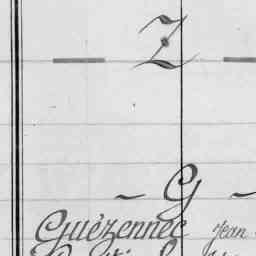 Z
G
Guézennec Jean